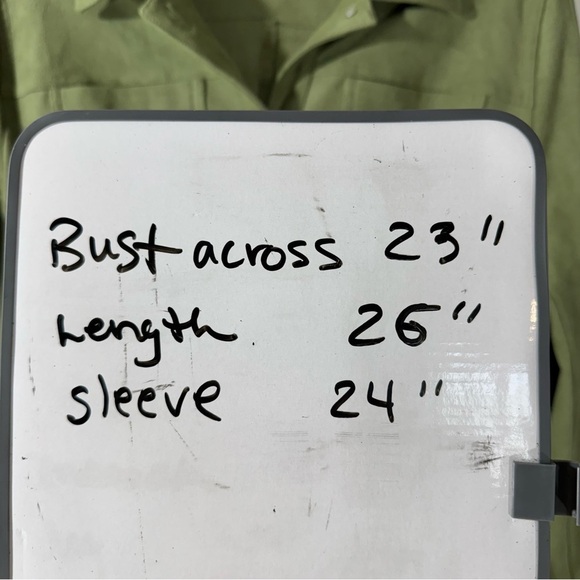 Bust across 23"
Length 26"
sleeve 24"